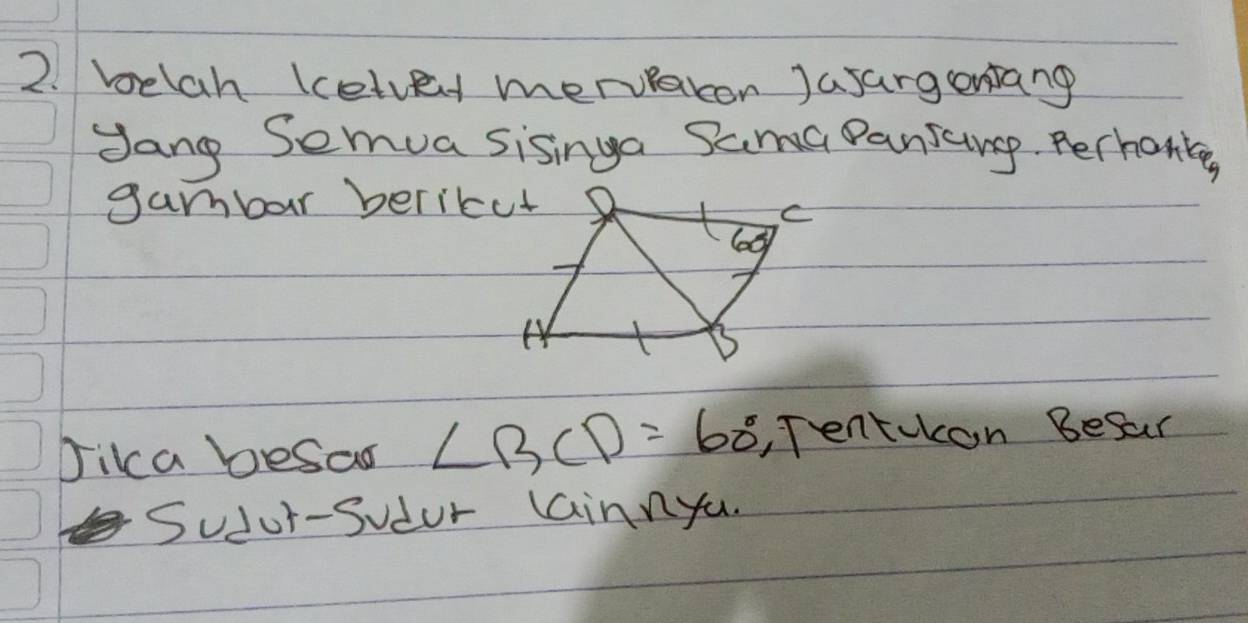 2. belah ketupat merupakan Jajargentang
yang Semua sisinya Sama Panjang. Perhatikan
gambar berikut
D C
60°
A B
Jika besar ∠BCD = 60°, Tentukan Besar
Sudut-Sudut lainnya.